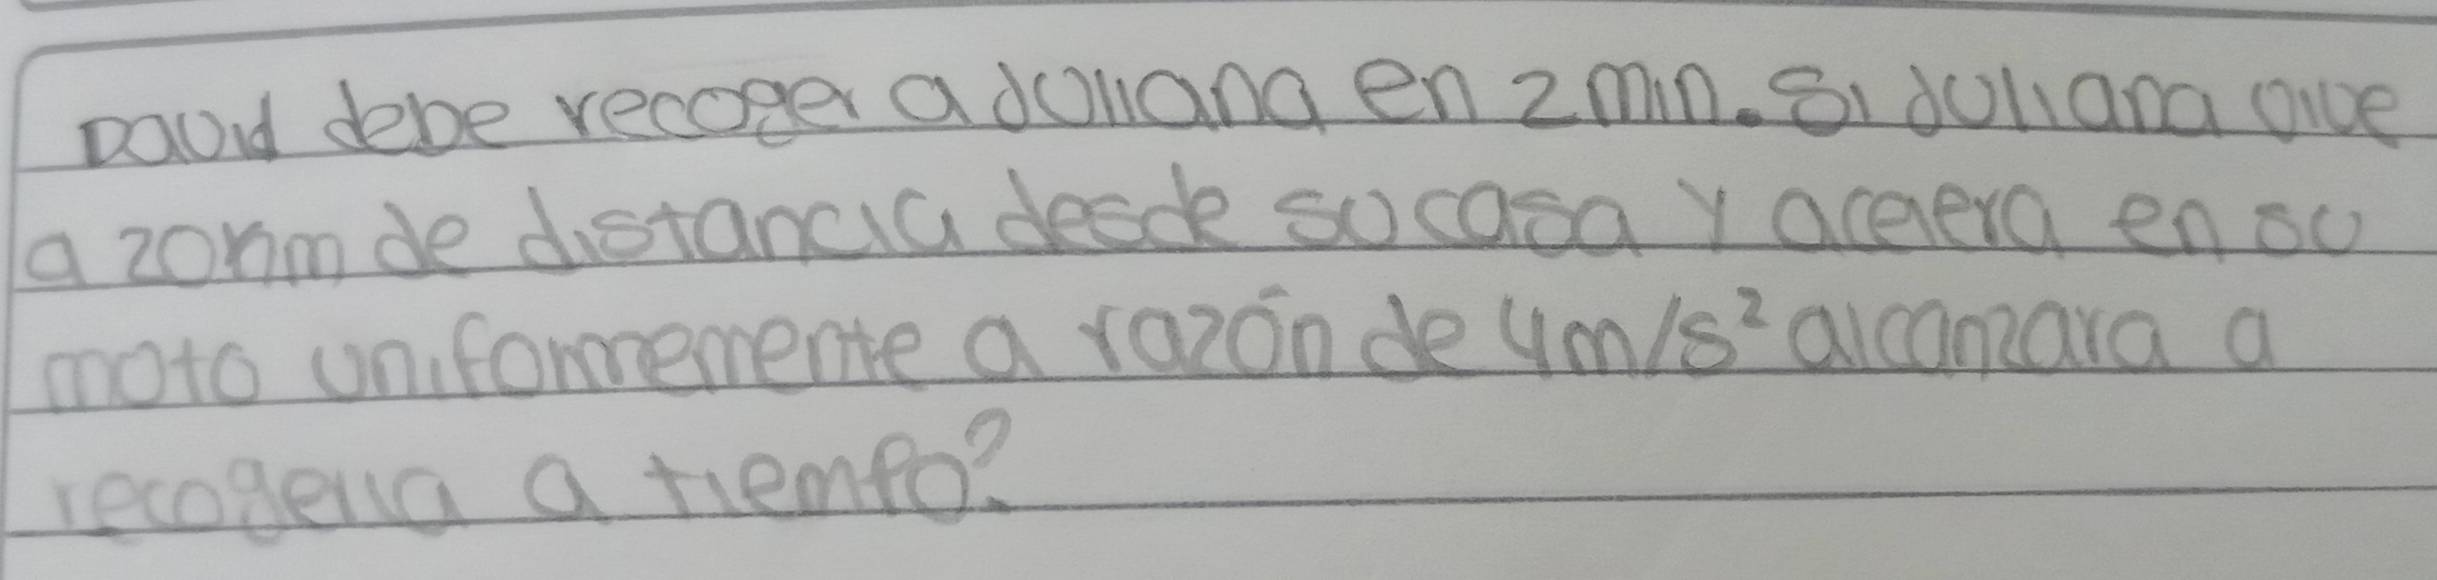 David debe recoger a Juliana en 2 min. Si Juliana vive
a 20km de distancia desde su casa y acelera en su
moto uniformemente a razón de 4m/s² alcanzara a
recogerla a tiempo?